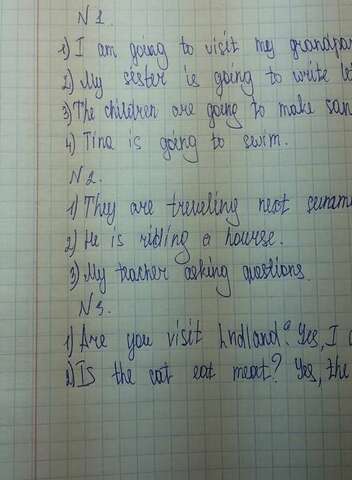 N 1.
1) I am going to visit my grandpar
2) My sister is going to write le
3) The children are going to make san
4) Tina is going to swim.
N 2.
1) They are treveling next summe
2) He is riding a hourse.
3) My teacher asking questions.
N 3.
1) Are you visit? Yes, I
2) Is the cat eat meat? Yes, the